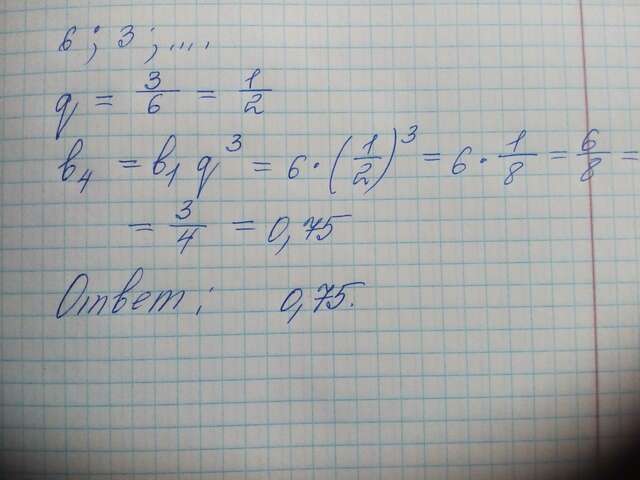 6; 3; ....
q = 3/6 = 1/2
b₄ = b₁ q³ = 6 · (1/2)³ = 6 · 1/8 = 6/8 =
= 3/4 = 0,75
Ответ: 0,75.